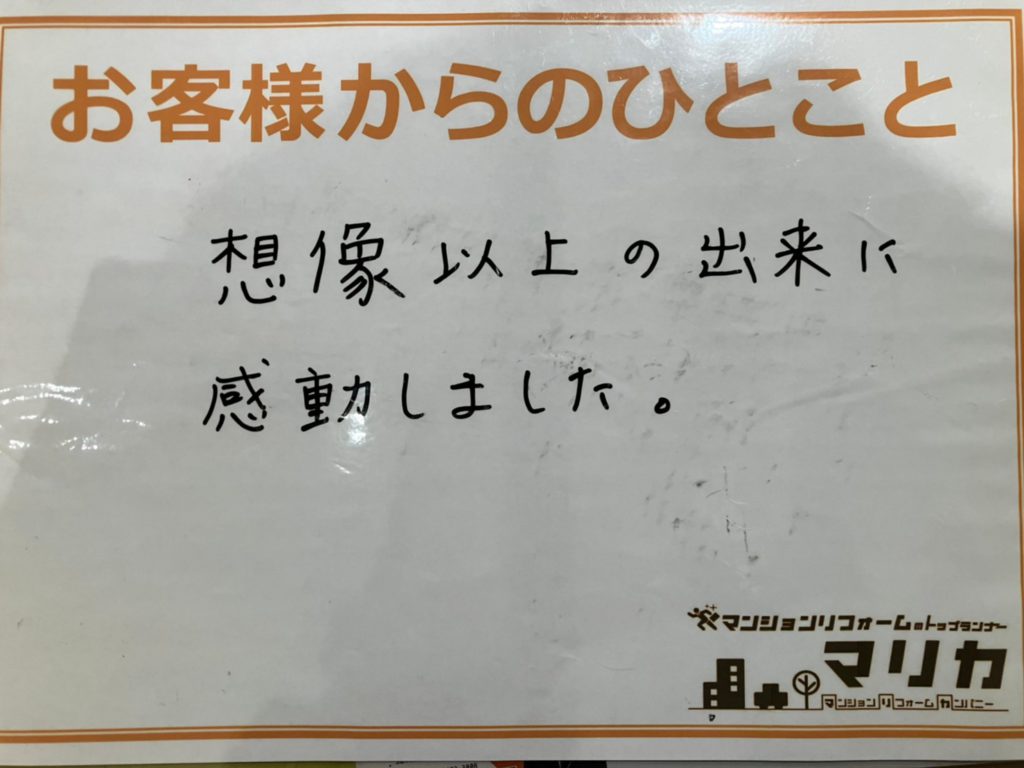 お客様からのひとこと
想像以上の出来に
感動しました。
マンションリフォームのトップランナー
マリカ
マンションリフォームカンパニー